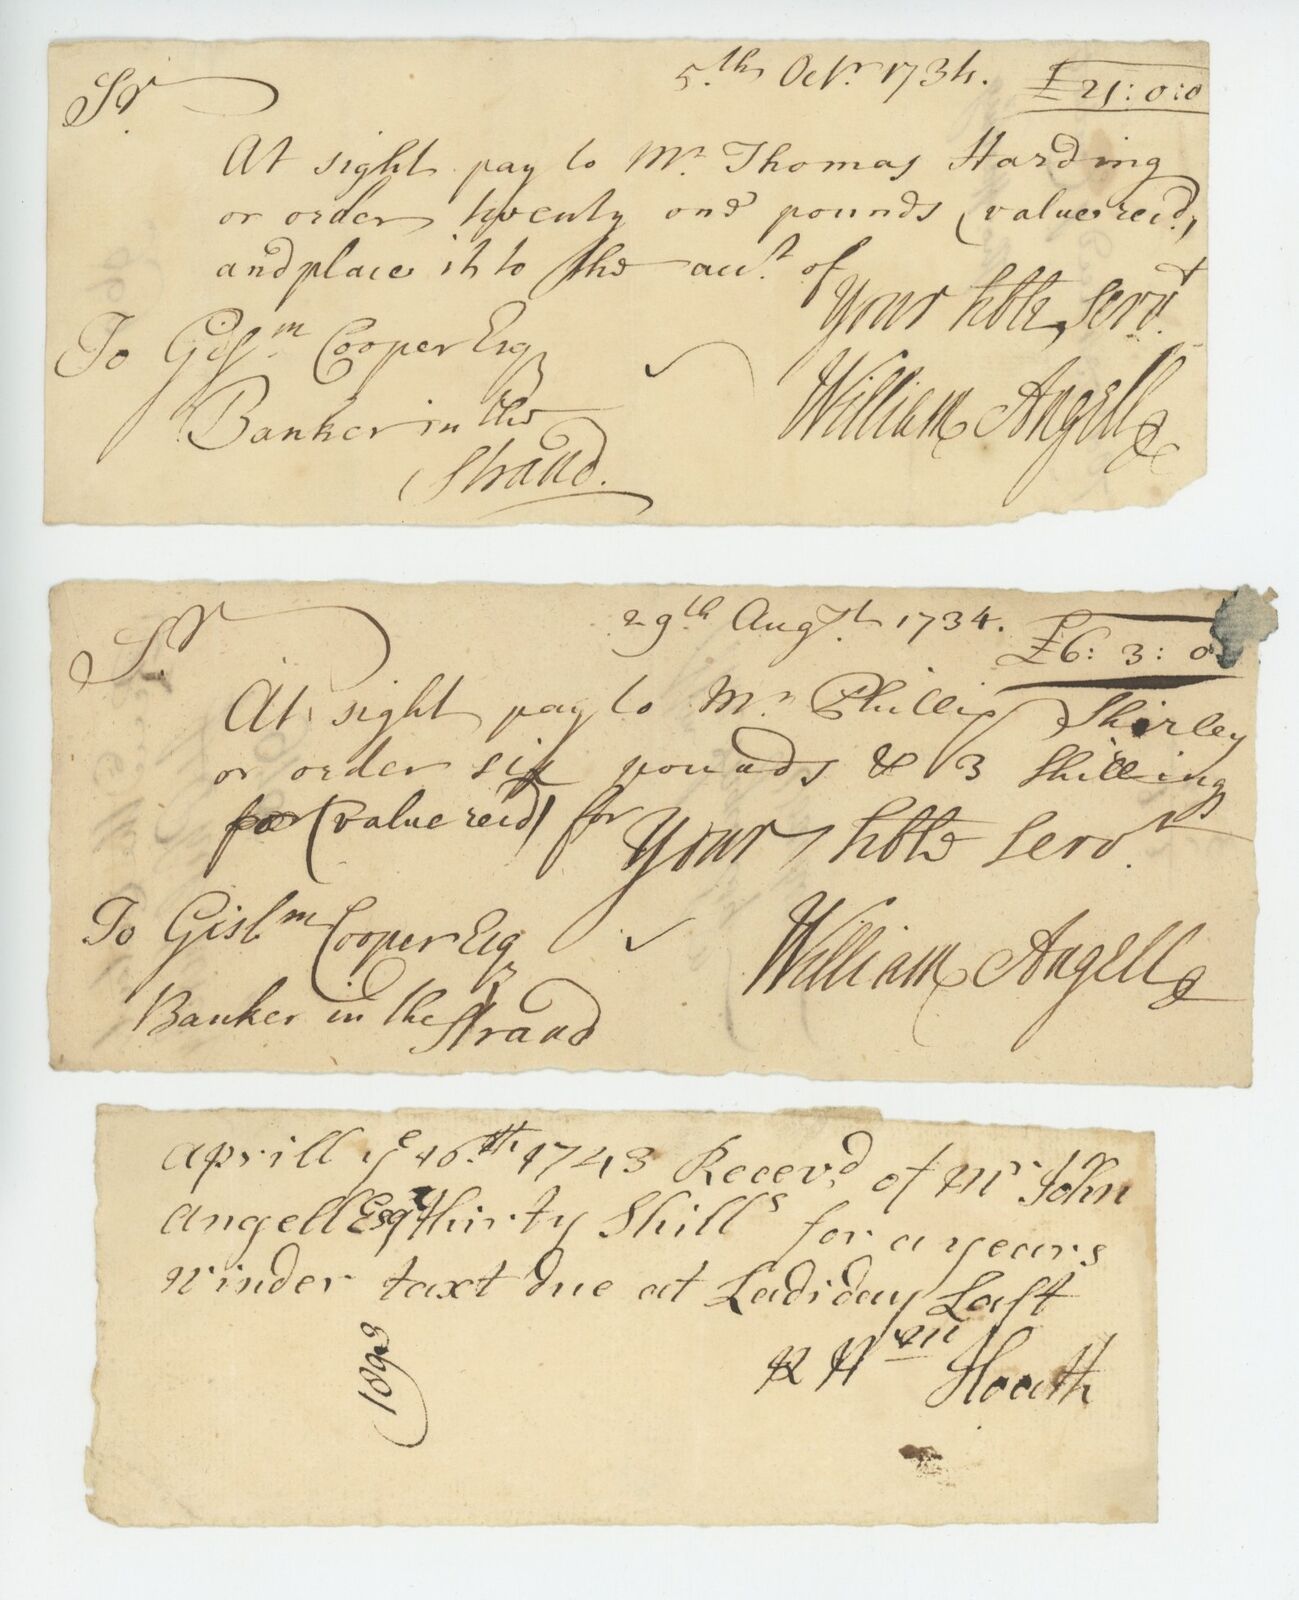 5.th Octr. 1734. £21:0:0
Sr.
At sight pay to Mr. Thomas Harding
or order twenty one pounds (value recd.)
and place it to the acct. of
Your hble servt.
William Angell
To Gisbm. Cooper Esq
Banker in the
Strand.
29th Augst. 1734. £6:3:0
Sr.
At sight pay to Mr. Phillip Shirley
or order six pounds & 3 shillings
for (value recd) for
Your hble servt.
William Angell
To Gisbm Cooper Esq
Banker in the Strand
aprill ye 16.th 1743 Receevd of Mr John
Angell Esqr thirty Shills for a years
winder taxt due at Ladiday Last
Wm Hoath
1893